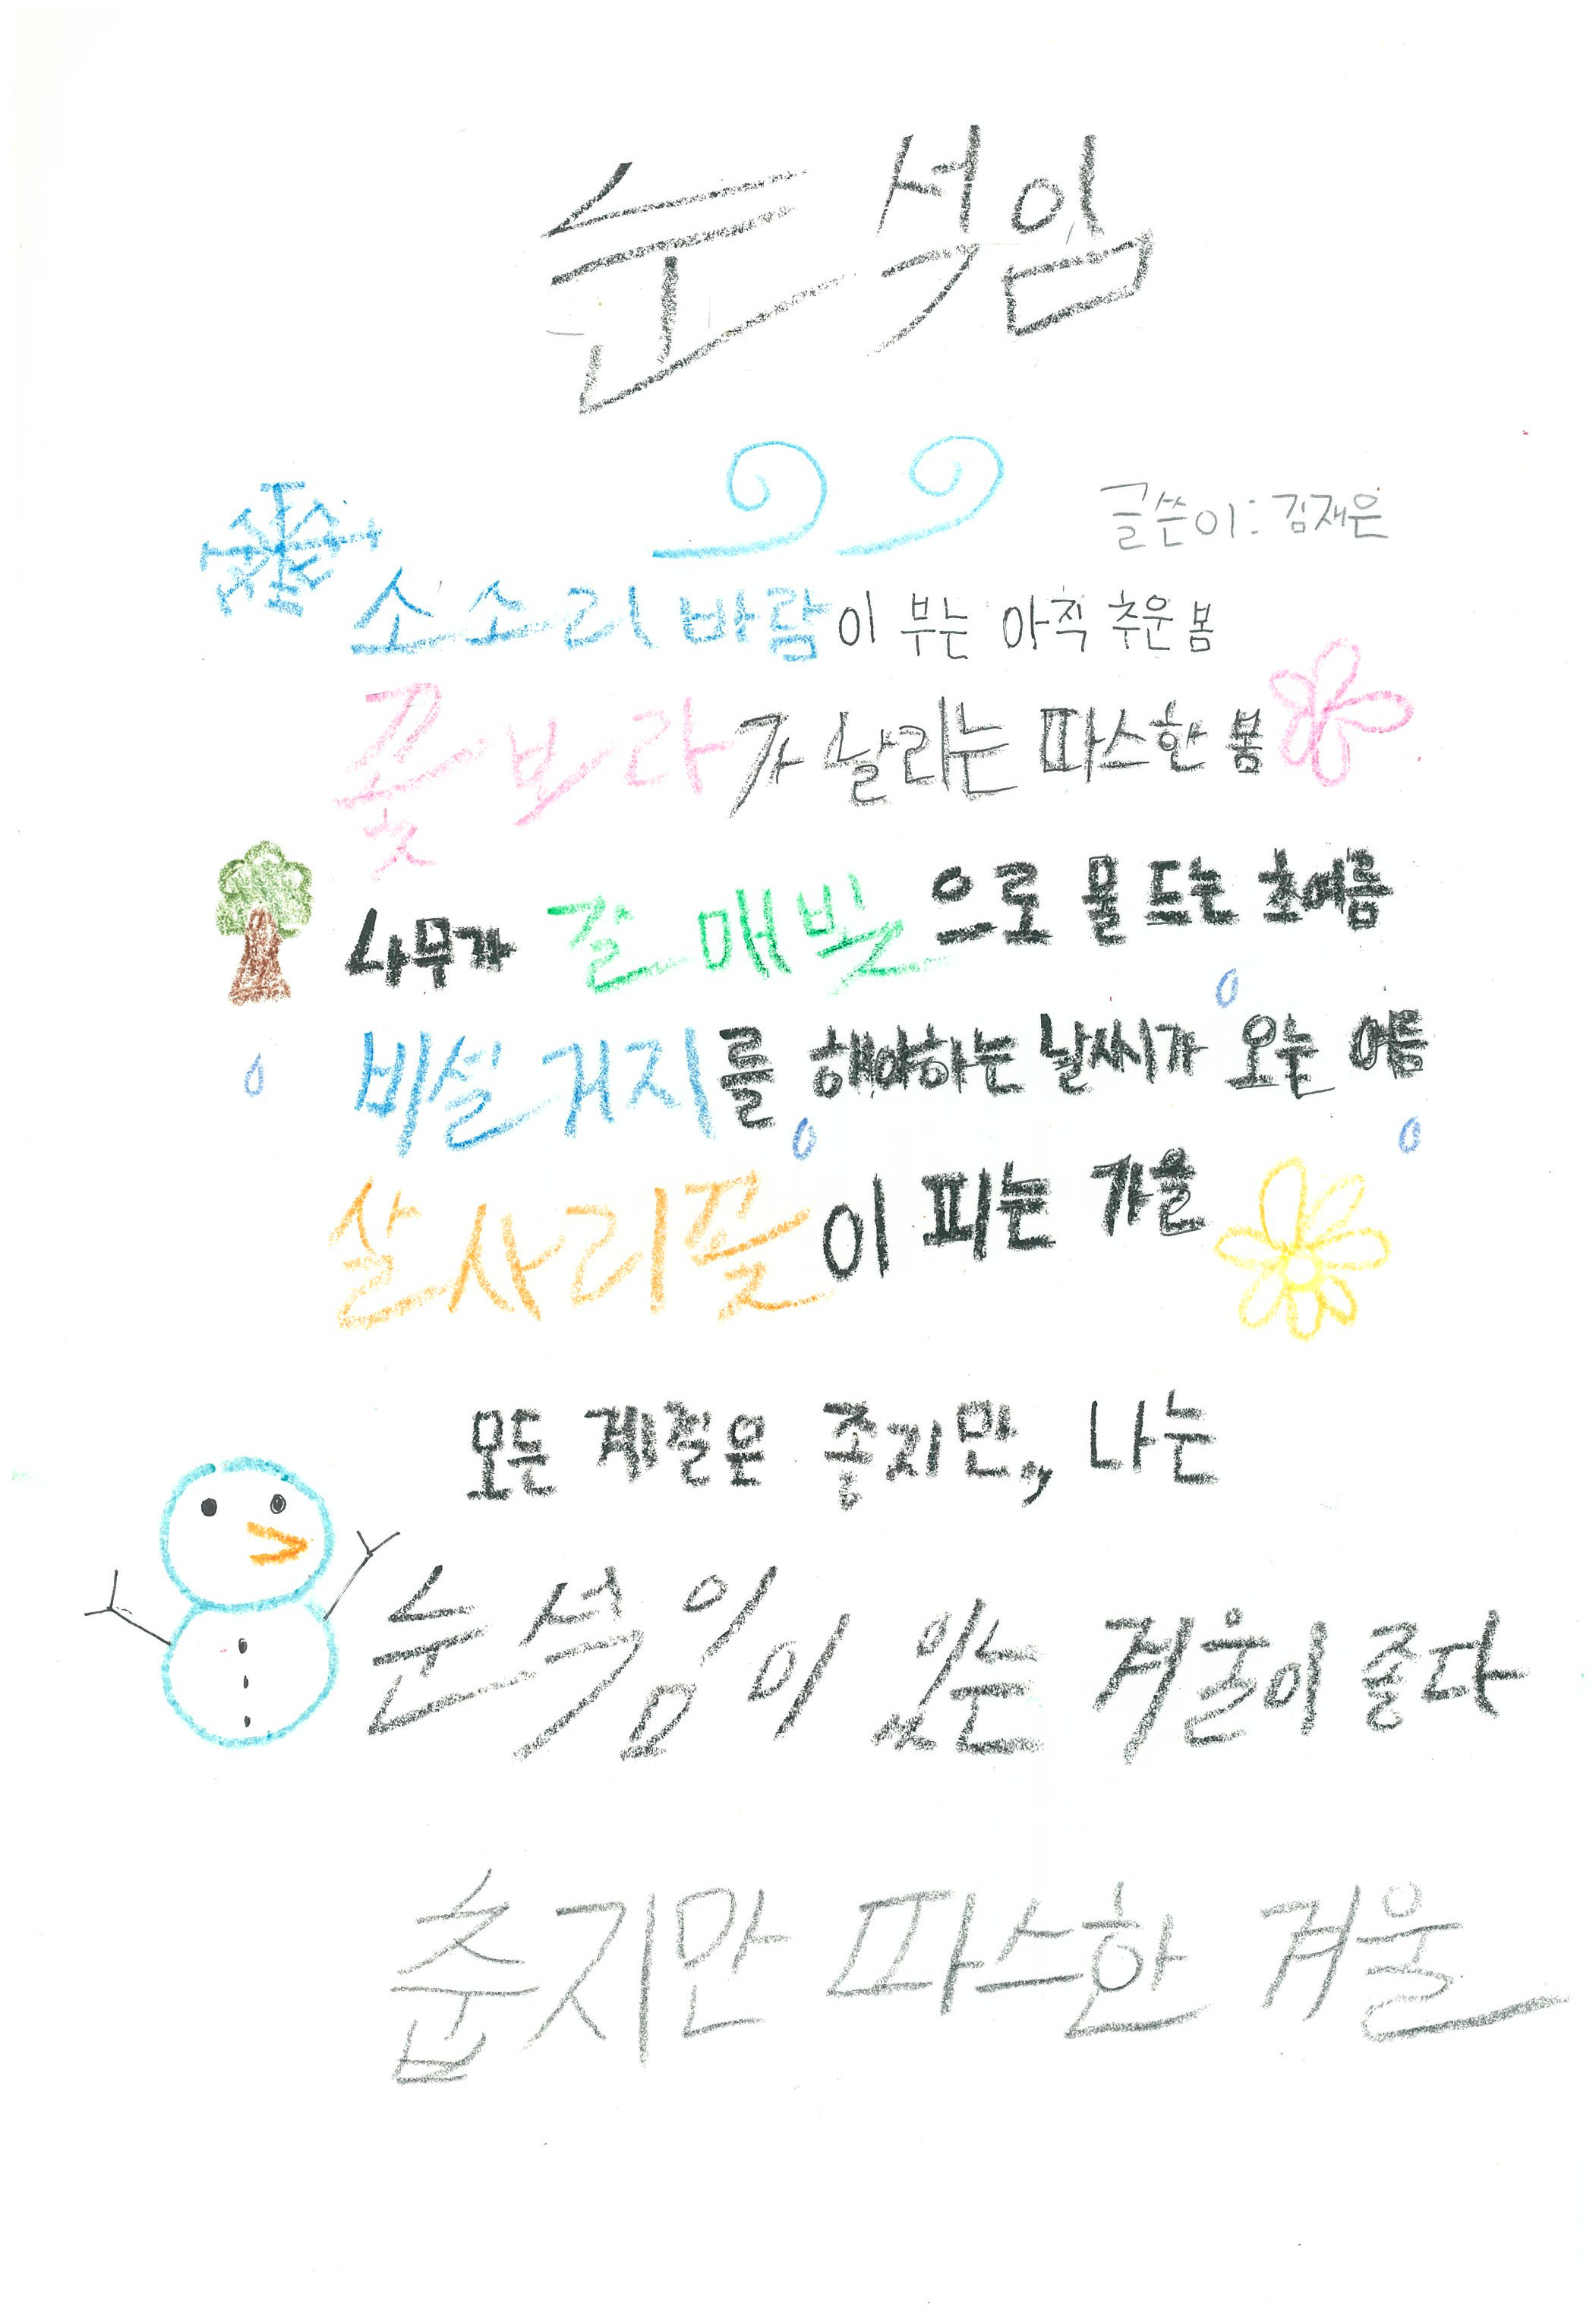 눈석임
글쓴이: 김재은
소소리 바람이 부는 아직 추운 봄
꽃보라가 날리는 따스한 봄
나무가 갈매빛으로 물드는 초여름
비설거지를 해야하는 날씨가 오는 여름
살사리꽃이 피는 가을
모든 계절은 좋지만, 나는
눈석임이 있는 겨울이 좋다
춥지만 따스한 겨울